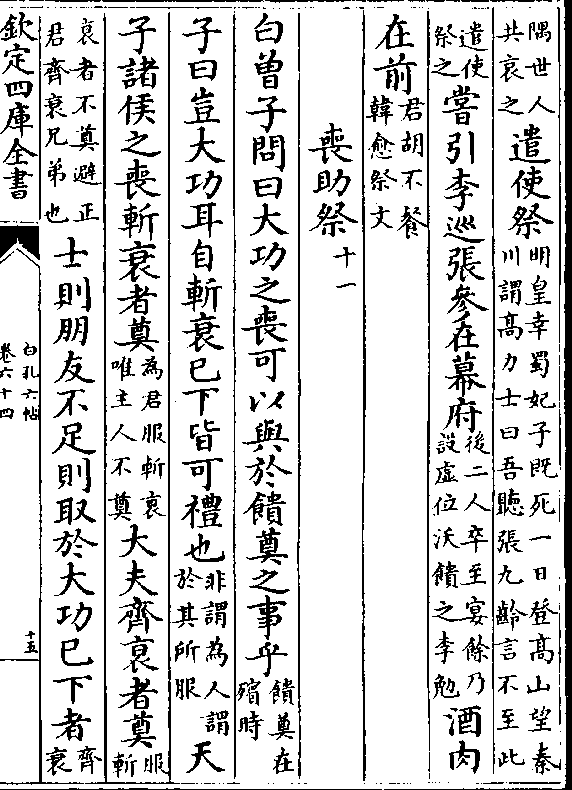 隅世人共哀之遣使祭明皇幸蜀妃子既死一日登髙山望秦川謂髙力士曰吾聽張九齡言不至此
遣使祭之嘗引李巡張參在幕府後二人卒至宴餘乃設虛位沃饋之李勉酒肉
在前君胡不餐韓愈祭文
喪助祭十一
白曽子問曰大功之喪可以與於饋奠之事乎饋奠在殯時
子曰豈大功耳自斬衰已下皆可禮也非謂為人謂於其所服天
子諸侯之喪斬衰者奠為君服斬衰唯主人不奠大夫齊衰者奠服斬
衰者不奠避正君齊衰兄弟也士則朋友不足則取於大功已下者齊衰
欽定四庫全書
白孔六帖
卷六十四
十五